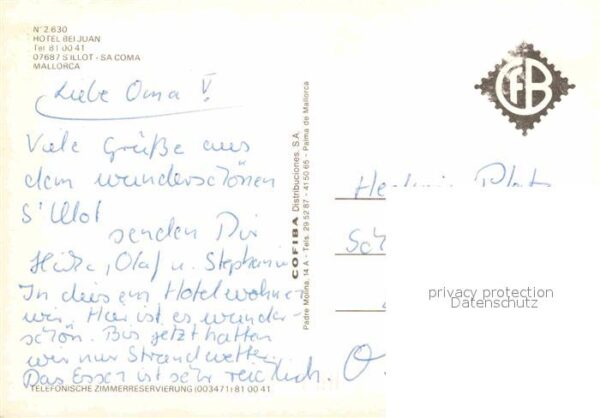 N° 2.630
HOTEL BEI JUAN
Tel 81 00 41
07687 S'ILLOT - SA COMA
MALLORCA
Liebe Oma V!
Viele Grüße aus
dem wunderschönen
S'Illot
senden Dir
Heike, Olaf u. Stephanie
In diesem Hotel wohnen
wir. Hier ist es wunder-
schön. Bis jetzt hatten
wir nur Strandwetter.
Das Essen ist sehr reichlich.
TELEFONISCHE ZIMMERRESERVIERUNG (003471) 81 00 41
COFIBA Distribuciones, S.A.
Padre Molina, 14 A - Tels. 29 52 87 - 41 50 65 - Palma de Mallorca
CFB
privacy protection
Datenschutz